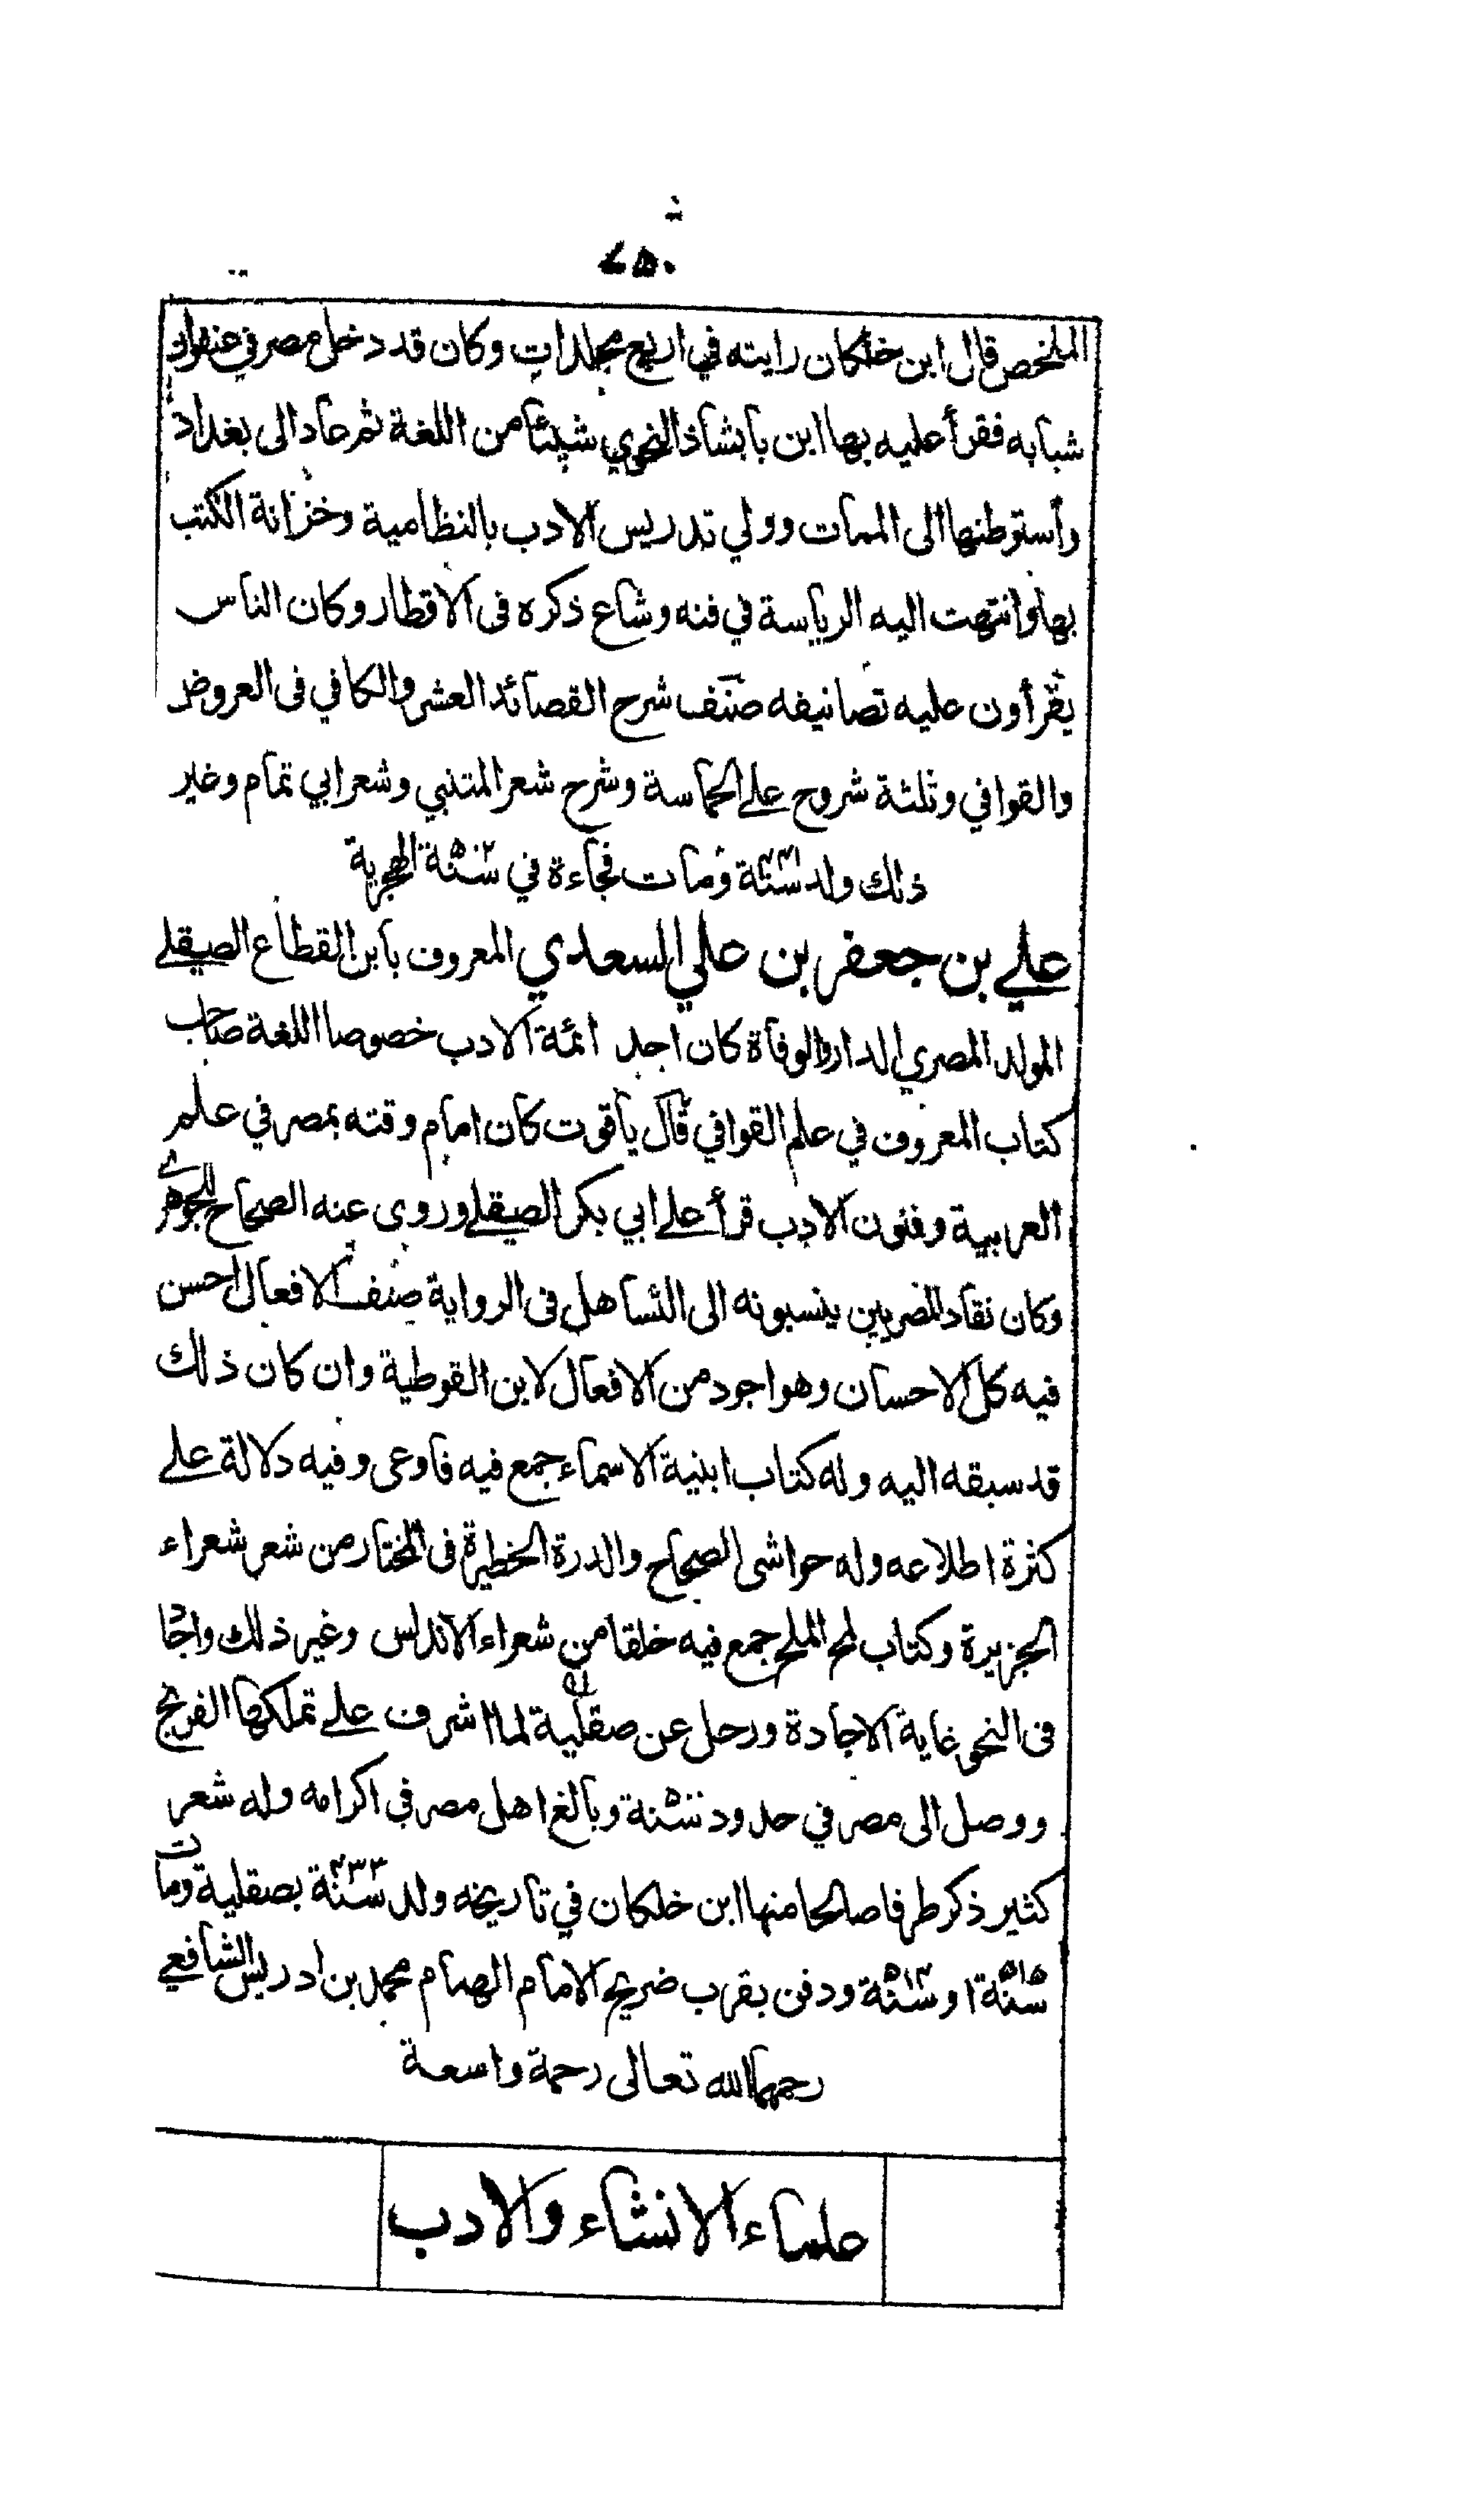 ٧٥٠
الملخص قال ابن خلكان رايته في اربع مجلدات وكان قد دخل مصر في عنفوان
شبابه فقرأ عليه بها ابن بابشاذ النحوي شيئا من اللغة ثم عاد الى بغداد
وأستوطنها الى الممات وولي تدريس الادب بالنظامية وخزانة الكتب
بها وانتهت اليه الرياسة في فنه وشاع ذكره فى الاقطار وكان الناس
يقرأون عليه تصانيفه صنف شرح القصائد العشر والكافي فى العروض
والقوافي وثلثة شروح على الحماسة وشرح شعر المتنبي وشعر ابي تمام وغير
ذلك ولد سنة ٤٢١ ومات فجاءة في سنة ٥٠٢ الهجرية
علي بن جعفر بن علي السعدي المعروف بابن القطاع الصيقلي
المولد المصري الدار والوفاة كان احد ائمة الادب خصوصا اللغة صاحب
كتاب المعروف في علم القوافي قال ياقوت كان امام وقته بمصر في علم
العربية وفنون الادب قرأ على ابي بكر الصيقلي وروى عنه الصحاح للجوهري
وكان نقاد المصريين ينسبونه الى التساهل فى الرواية صنف الافعال احسن
فيه كل الاحسان وهو اجود من الافعال لابن القوطية وان كان ذلك
قد سبقه اليه وله كتاب ابنية الاسماء جمع فيه فاوعى وفيه دلالة على
كثرة اطلاعه وله حواشى الصحاح والدرة الخطيرة فى المختار من شعر شعراء
الجزيرة وكتاب لمح الملح جمع فيه خلقا من شعراء الاندلس وغير ذلك واجاد
فى النحو غاية الاجادة ورحل عن صقلية لما اشرف على تملكها الفرنج
ووصل الى مصر في حدود سنة ٥٠٠ وبالغ اهل مصر في اكرامه وله شعر
كثير ذكر طرفا صالحا منها ابن خلكان في تاريخه ولد سنة ٤٣٣ بصقلية ومات
سنة ٥١٥ او سنة ٥١٤ ودفن بقرب ضريح الامام الهمام محمد بن ادريس الشافعي
رحمهما الله تعالى رحمة واسعة
علماء الانشاء والادب